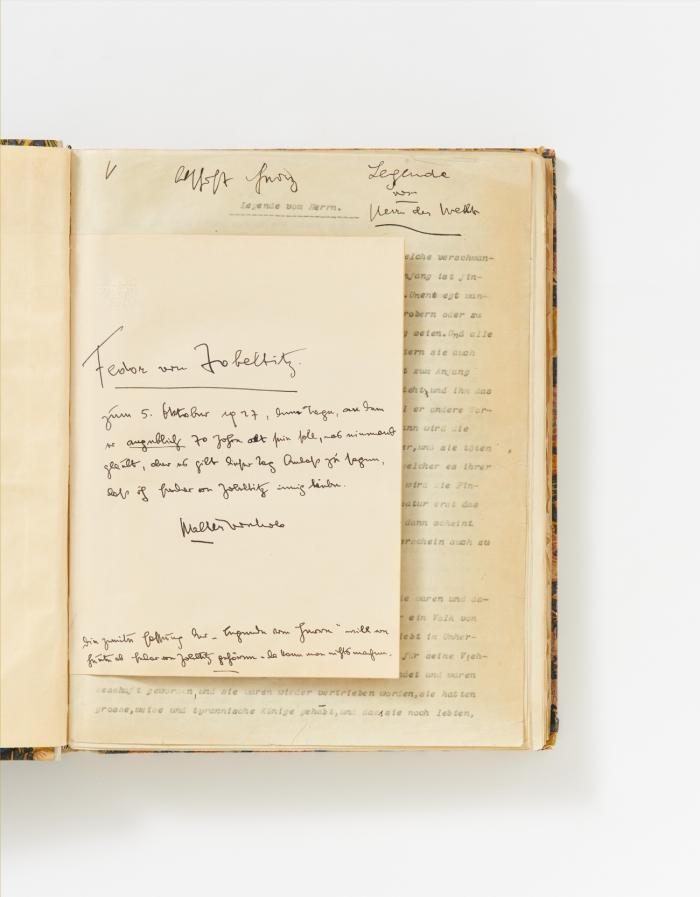 Legende
vom
Herrn der Welt
Legende vom Herrn.
elche verschwun-
nfang ist fin-
robern oder zu
weten.Und alle
dern sie auch
t zum Anfang
und ihm das
er andere Vor-
nn wird die
er,und sie töten
welcher es ihrer
wird die Fin-
atur erst das
dann scheint
erschein auch zu
Fedor von Zobeltitz.
zum 5. Oktober 1927, dem Tage, an dem
er angeblich 70 Jahre alt sein soll, was niemand
glaubt, aber es gilt dieser Tag Anlass zu sagen,
dass ich Fedor von Zobeltitz innig liebe.
die zweite Fassung der „Legende vom Herrn" will
Fedor von Zobeltitz gehören - da kann man nichts machen.
ie waren und da-
ein Volk von
lebt in Unher-
für seine Vieh-
det und waren
sesshaft geworden,und sie waren wieder vertrieben worden,sie hatten
grosse,weise und tyrannische Könige gehabt,und dass sie noch lebten,